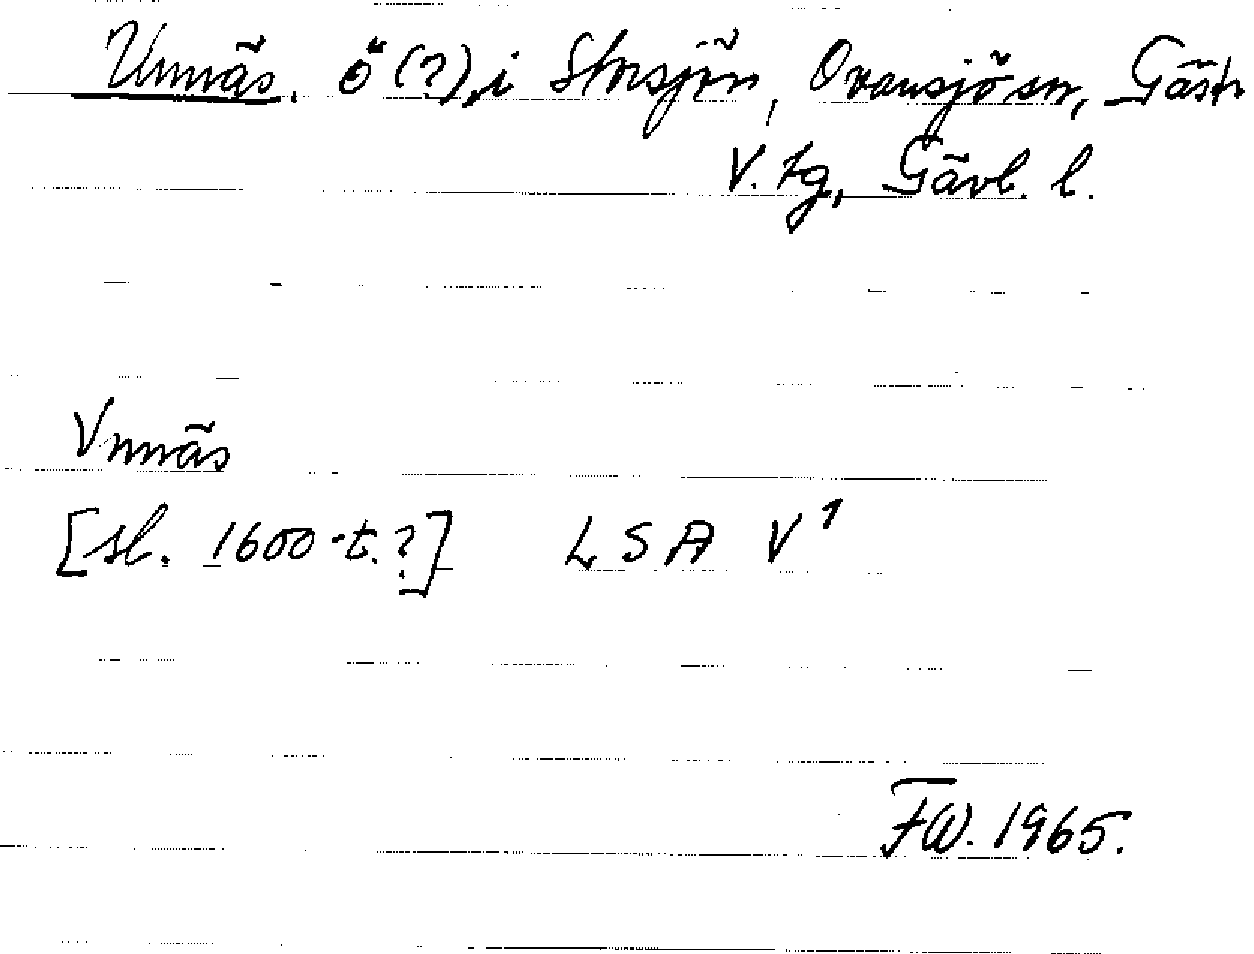 Unnäs. ö (?), i Storsjön, Ovansjö sn, Gästr
V. tg, Gävl. l.
Vnnäs
[sl. 1600-t.?] LSA V¹
FW. 1965.